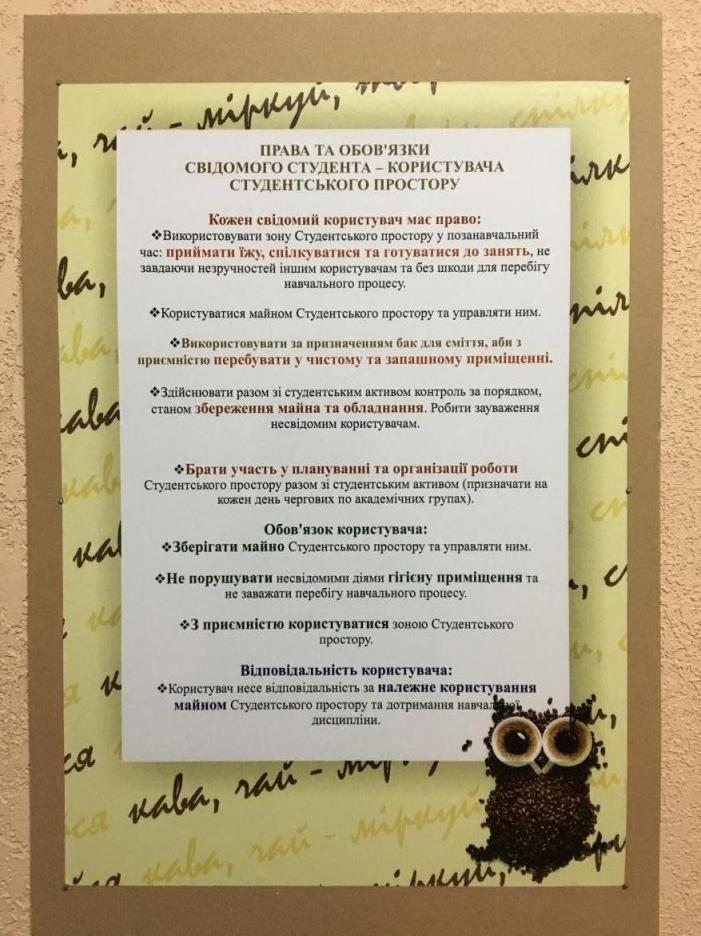 ПРАВА ТА ОБОВ'ЯЗКИ
СВІДОМОГО СТУДЕНТА – КОРИСТУВАЧА
СТУДЕНТСЬКОГО ПРОСТОРУ
Кожен свідомий користувач має право:
❖Використовувати зону Студентського простору у позанавчальний
час: приймати їжу, спілкуватися та готуватися до занять, не
завдаючи незручностей іншим користувачам та без шкоди для перебігу
навчального процесу.
❖Користуватися майном Студентського простору та управляти ним.
❖Використовувати за призначенням бак для сміття, аби з
приємністю перебувати у чистому та запашному приміщенні.
❖Здійснювати разом зі студентським активом контроль за порядком,
станом збереження майна та обладнання. Робити зауваження
несвідомим користувачам.
❖Брати участь у плануванні та організації роботи
Студентського простору разом зі студентським активом (призначати на
кожен день чергових по академічних групах).
Обов'язок користувача:
❖Зберігати майно Студентського простору та управляти ним.
❖Не порушувати несвідомими діями гігієну приміщення та
не заважати перебігу навчального процесу.
❖З приємністю користуватися зоною Студентського
простору.
Відповідальність користувача:
❖Користувач несе відповідальність за належне користування
майном Студентського простору та дотримання навчальної
дисципліни.
чай - міркуй,
кава, чай -
кава, чай - міркуй,